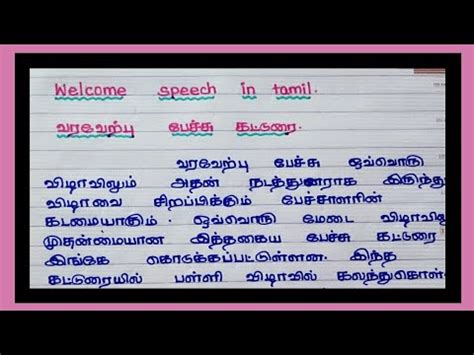 Welcome speech in tamil.
வரவேற்பு பேச்சு கட்டுரை.
வரவேற்பு பேச்சு ஒவ்வொரு
விழாவிலும் அதன் நடத்துனராக இருந்து
விழாவை சிறப்பிக்கும் பேச்சாளரின்
கடமையாகும். ஒவ்வொரு மேடை விழாவில
முதன்மையான இத்தகைய பேச்சு கட்டுரை
இங்கே கொடுக்கப்பட்டுள்ளன. இந்த
கட்டுரையில் பள்ளி விழாவில் கலந்துகொள்